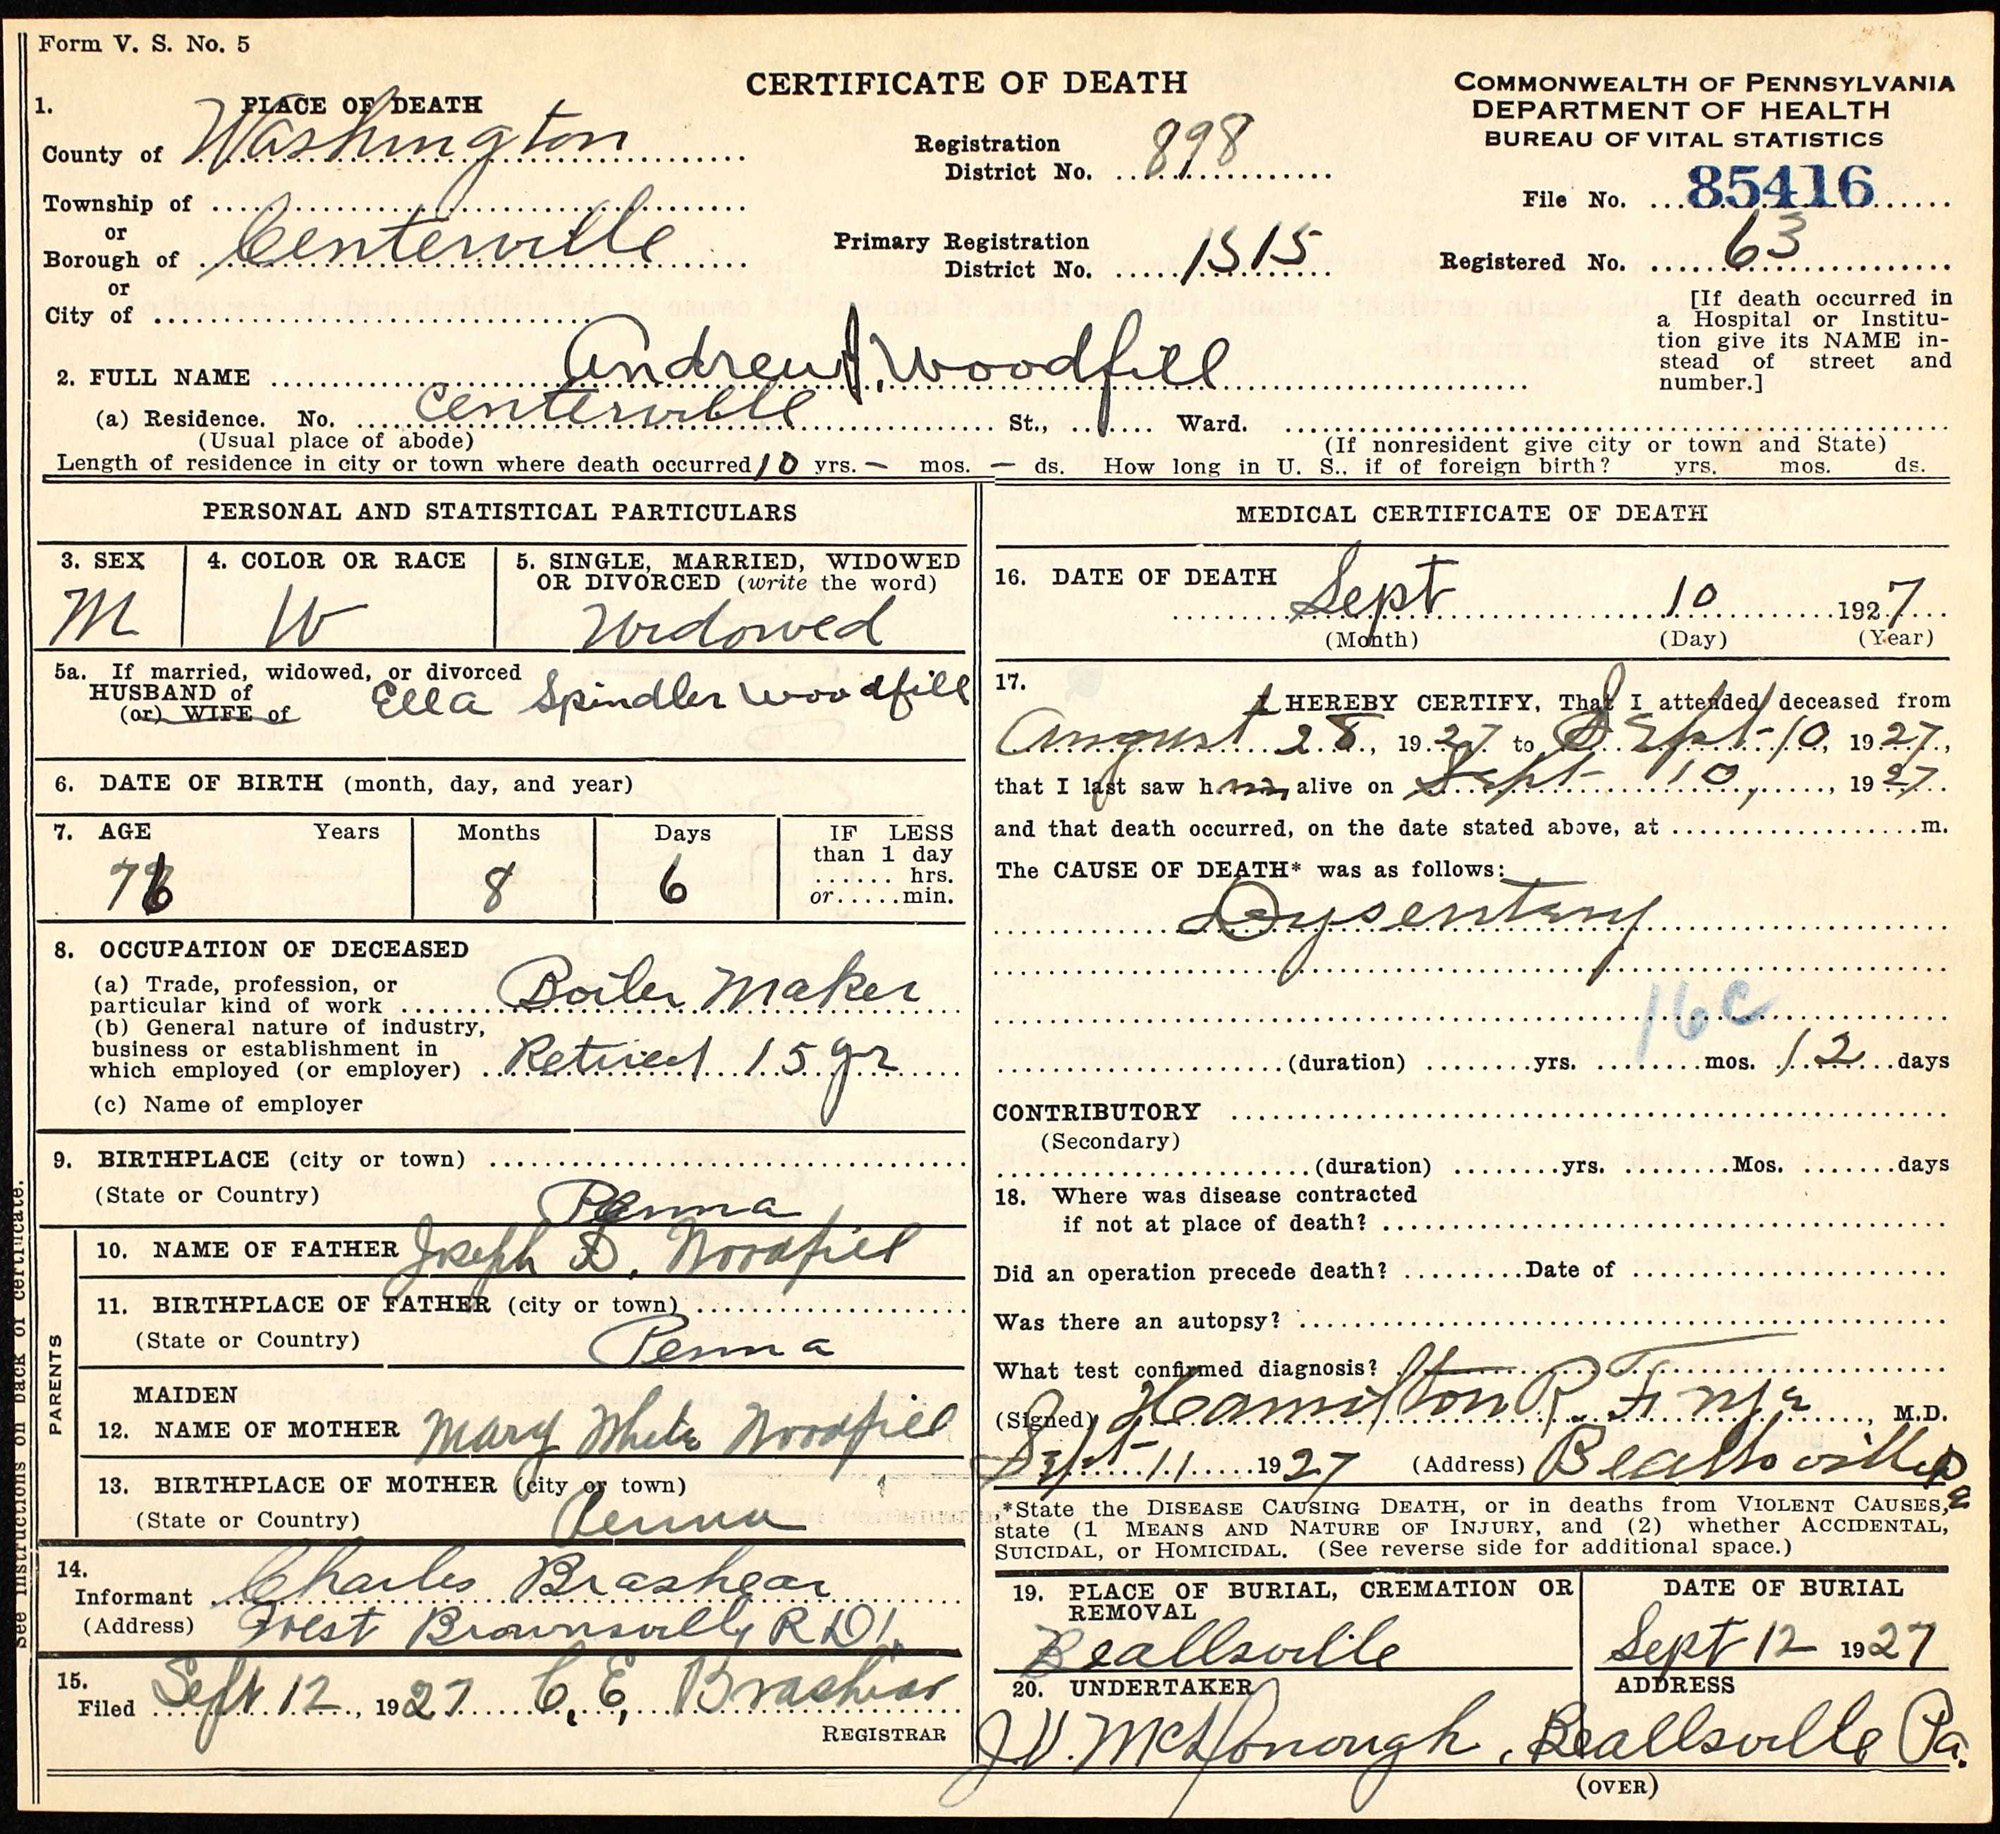 Form V. S. No. 5
CERTIFICATE OF DEATH
COMMONWEALTH OF PENNSYLVANIA
DEPARTMENT OF HEALTH
BUREAU OF VITAL STATISTICS
1. PLACE OF DEATH
County of Washington
Registration District No. 898
File No. 85416
Township of
or
Borough of Centerville
Primary Registration District No. 1515
Registered No. 63
or
City of
[If death occurred in
a Hospital or Institu-
tion give its NAME in-
stead of street and
number.]
2. FULL NAME Andrew J. Woodfill
(a) Residence. No. Centerville St., Ward.
(Usual place of abode) (If nonresident give city or town and State)
Length of residence in city or town where death occurred 10 yrs. — mos. — ds. How long in U. S., if of foreign birth? yrs. mos. ds.
PERSONAL AND STATISTICAL PARTICULARS
3. SEX
M
4. COLOR OR RACE
W
5. SINGLE, MARRIED, WIDOWED
OR DIVORCED (write the word)
Widowed
5a. If married, widowed, or divorced
HUSBAND of
(or) WIFE of
Ella Spindler Woodfill
6. DATE OF BIRTH (month, day, and year)
7. AGE Years Months Days IF LESS
than 1 day
hrs.
or min.
76 8 6
8. OCCUPATION OF DECEASED
(a) Trade, profession, or
particular kind of work Boiler Maker
(b) General nature of industry,
business or establishment in
which employed (or employer) Retired 15 yr
(c) Name of employer
9. BIRTHPLACE (city or town)
(State or Country) Penna
PARENTS
10. NAME OF FATHER Joseph D. Woodfill
11. BIRTHPLACE OF FATHER (city or town)
(State or Country) Penna
MAIDEN
12. NAME OF MOTHER Mary White Woodfill
13. BIRTHPLACE OF MOTHER (city or town)
(State or Country) Penna
14.
Informant Charles Brashear
(Address) West Brownsville R D 1
15.
Filed Sept 12, 1927 C. E. Brashear
REGISTRAR
See instructions on back of certificate.
MEDICAL CERTIFICATE OF DEATH
16. DATE OF DEATH Sept 10 1927
(Month) (Day) (Year)
17.
I HEREBY CERTIFY, That I attended deceased from
August 28, 1927 to Sept 10, 1927,
that I last saw him alive on Sept 10, 1927
and that death occurred, on the date stated above, at m.
The CAUSE OF DEATH* was as follows:
Dysentary
16c
(duration) yrs. mos. 12 days
CONTRIBUTORY
(Secondary)
(duration) yrs. Mos. days
18. Where was disease contracted
if not at place of death?
Did an operation precede death? Date of
Was there an autopsy?
What test confirmed diagnosis?
(Signed) Hamilton R. F. , M.D.
Sept 11 1927 (Address) Beallsville Pa
*State the DISEASE CAUSING DEATH, or in deaths from VIOLENT CAUSES,
state (1 MEANS AND NATURE OF INJURY, and (2) whether ACCIDENTAL,
SUICIDAL, or HOMICIDAL. (See reverse side for additional space.)
19. PLACE OF BURIAL, CREMATION OR
REMOVAL
Beallsville
DATE OF BURIAL
Sept 12 1927
20. UNDERTAKER ADDRESS
J. V. McDonough, Beallsville Pa.
(OVER)